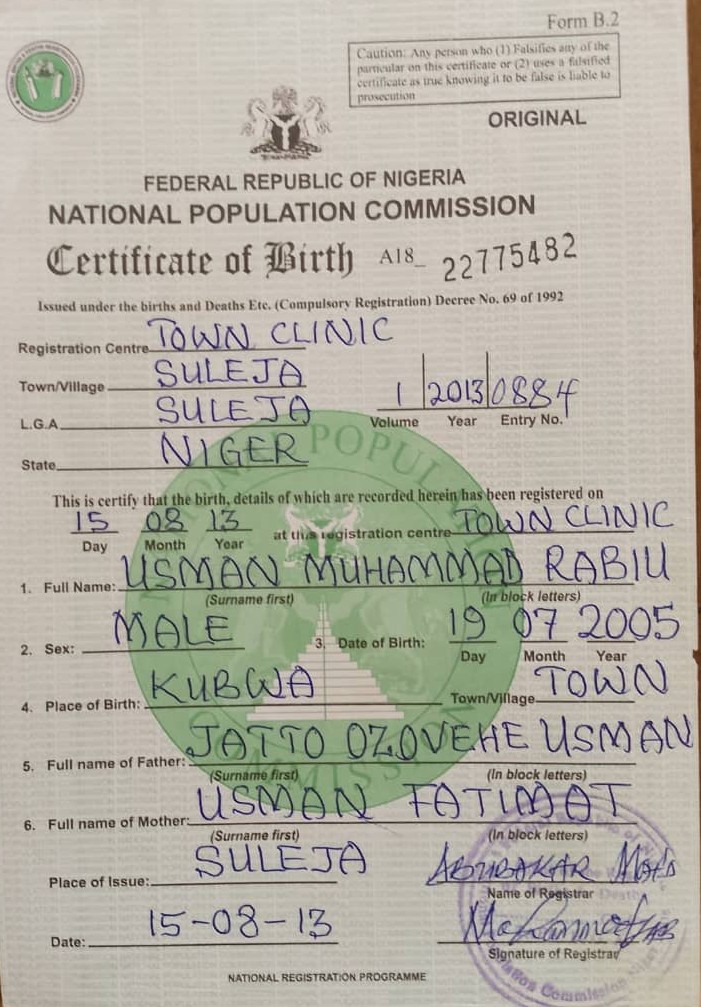 Form B.2
Caution: Any person who (1) Falsifies any of the
particular on this certificate or (2) uses a falsified
certificate as true knowing it to be false is liable to
prosecution
ORIGINAL
FEDERAL REPUBLIC OF NIGERIA
NATIONAL POPULATION COMMISSION
Certificate of Birth A18_ 22775482
Issued under the births and Deaths Etc. (Compulsory Registration) Decree No. 69 of 1992
Registration Centre TOWN CLINIC
Town/Village SULEJA
1 2013 0884
L.G.A SULEJA
Volume Year Entry No.
State NIGER
This is certify that the birth, details of which are recorded herein has been registered on
15 08 13 at this registration centre TOWN CLINIC
Day Month Year
1. Full Name: USMAN MUHAMMAD RABIU
(Surname first) (In block letters)
2. Sex: MALE 3. Date of Birth: 19 07 2005
Day Month Year
4. Place of Birth: KUBWA Town/Village TOWN
5. Full name of Father: JATTO OZOVEHE USMAN
(Surname first) (In block letters)
6. Full name of Mother: USMAN FATIMAT
(Surname first) (In block letters)
Place of Issue: SULEJA ABUBAKAR
Name of Registrar
Date: 15-08-13
Signature of Registrar
NATIONAL REGISTRATION PROGRAMME